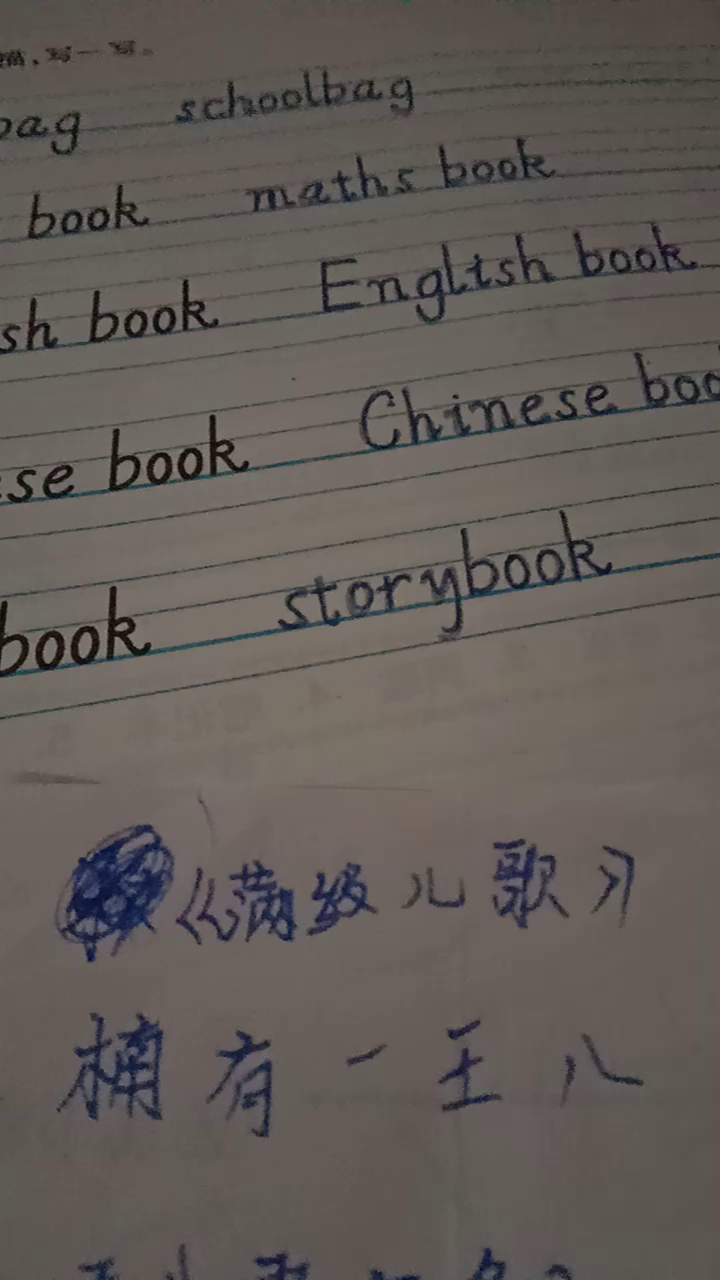 写一写。
bag schoolbag
book maths book
sh book English book
se book Chinese boo
book storybook
《满级儿歌》
桶有一王八